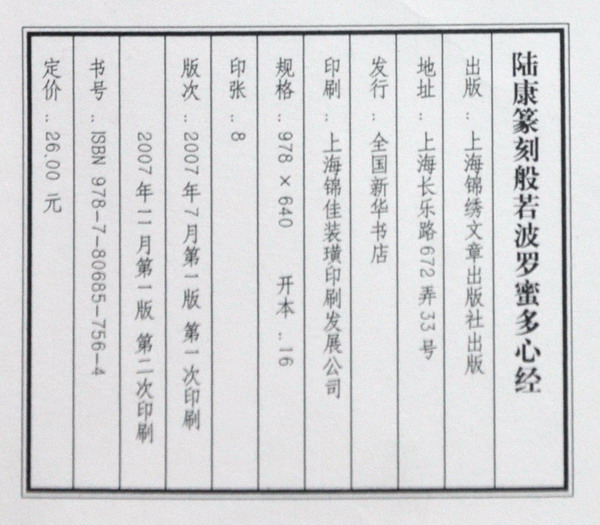 陆康篆刻般若波罗蜜多心经
出版：上海锦绣文章出版社出版
地址：上海长乐路672弄33号
发行：全国新华书店
印刷：上海锦佳装璜印刷发展公司
规格：978×640 开本：16
印张：8
版次：2007年7月第一版 第一次印刷
2007年11月第一版 第二次印刷
书号：ISBN 978-7-80685-756-4
定价：26.00元